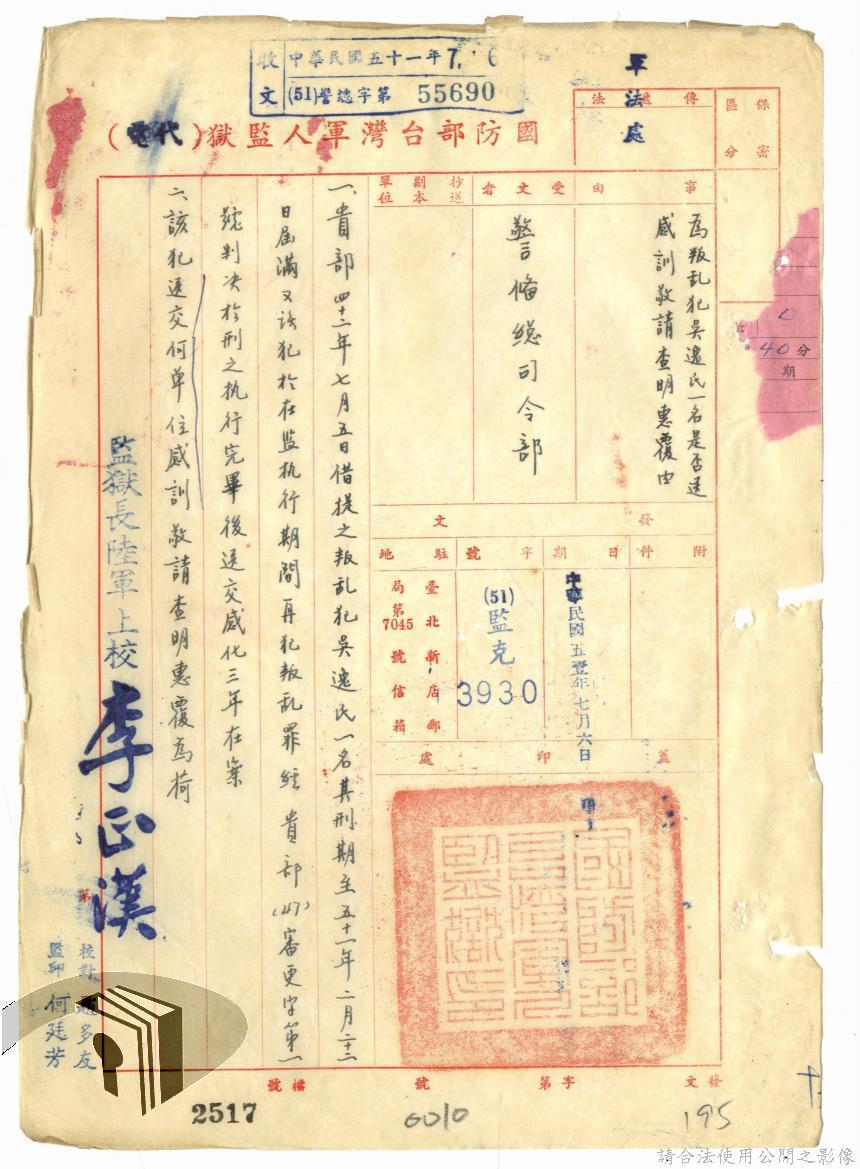 收文
中華民國五十一年7. 6
(51)警總字第 55690
軍法處
國防部台灣軍人監獄(代電)
保密
區分
傳遞
法
事由
為叛乱犯吳逸民一名是否送
感訓敬請查明惠覆由
受文者
警備總司令部
抄送
副本
單位
發文
附件
日期
中華民國五壹年七月六日
字號
(51)
監克
3930
駐地
臺北新店郵
局第7045號信箱
蓋印處
國防部
台灣軍人
監獄印
40分
期
一、貴部四十二年七月五日借提之叛乱犯吳逸民一名其刑期至五十一年二月二十二
日屆滿又該犯於在监执行期間再犯叛乱罪經貴部(47)審更字第一
號判决於刑之执行完畢後送交感化三年在案
二、該犯送交何单位感訓敬請查明惠覆為荷
監獄長陸軍上校李正漢
校對 趙多友
監印 何廷芳
發文
字第
號
檔號
2517
6010
195
請合法使用公開之影像